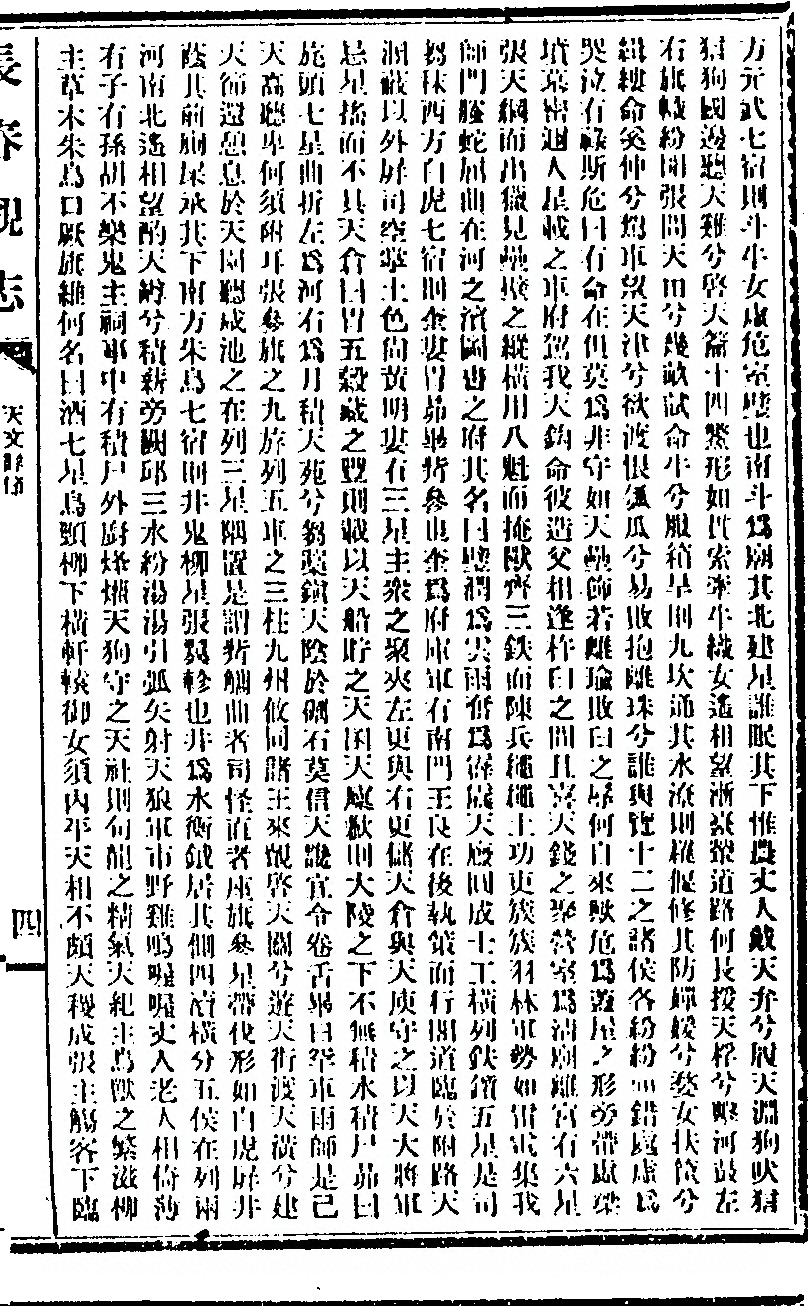 方元武七宿則斗牛女虛危室壁也南斗爲廟其北建星誰眠其下惟農丈人戴天弁兮履天淵狗吠猖
猖狗國邊聽天雞兮啓天籥十四鱉形如貫索牽牛織女遙相望漸臺輦道路何長援天桴兮擊河鼓左
右旗幟紛開張問天田兮幾畝試命牛兮服箱旱則九坎通其水潦則羅堰修其防嫜媛兮婺女扶筐兮
組縷命奚仲兮駕車望天津兮欲渡恨瓠瓜兮易敗抱離珠兮誰與覽十二之諸侯各紛紛而錯處虛爲
哭泣有祿斯危曰有命在但莫爲非守如天壘飾若離瑜敗臼之凶何自來歟危爲蓋屋之形旁帶虛梁
墳墓密邇人星載之車府駕我天鈎命彼造父相逢杵臼之間且喜天錢之聚營室爲清廟離宮有六星
張天綱而出獵見壘壁之縱橫用八魁而掩獸齊三鉄而陳兵繩繩土功吏簇簇羽林軍勢如雷電集我
師門螣蛇屈曲在河之濱圖書之府其名曰壁濶爲雲雨奮爲霹靂天廄回成土工橫列鈇鑕五星是司
芻秣西方白虎七宿則奎婁胃昴畢觜參也奎爲府庫軍有南門王良在後執策而行閣道臨於附路天
溷蔽以外屏司空掌土色尙黃明婁有三星主衆之聚夾左更與右更儲天倉與天庾守之以天大將軍
忌星搖而不具天倉曰胃五穀藏之豐則載以天船貯之天囷天廩歉則大陵之下不無積水積尸昴曰
旄頭七星曲折左爲河右爲月積天苑兮芻藁鎮天陰於礪石莫信天讒宜令卷舌畢曰罕車雨師是已
天高聽卑何須附耳張參旗之九旒列五車之三柱九州攸同諸王來覲啓天關兮遊天街渡天潢兮建
天節還憩息於天園聽咸池之在列三星隅置是謂觜觿曲者司怪直者座旗參星帶伐形如白虎屛井
蔭其前廁屎承其下南方朱鳥七宿則井鬼柳星張翼軫也井爲水衡鉞居其側四瀆橫分五侯在列兩
河南北遙相望酌天罇兮積薪旁闕邱三水紛湯湯引弧矢射天狼軍市野雞鳴喔喔丈人老人相倚薄
有子有孫胡不樂鬼主祠事中有積尸外廚烽爟天狗守之天社則句龍之精氣天紀主鳥獸之繁滋柳
主草木朱鳥口厥旗維何名曰酒七星鳥頸柳下橫軒轅御女須內平天相不頗天稷成張主觴客下臨
長春觀志
天文
四